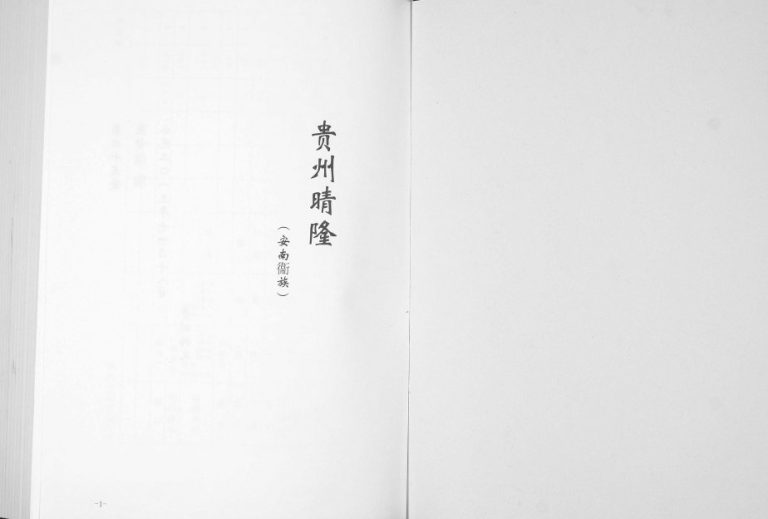 贵州晴隆
（安南衞族）
-1-